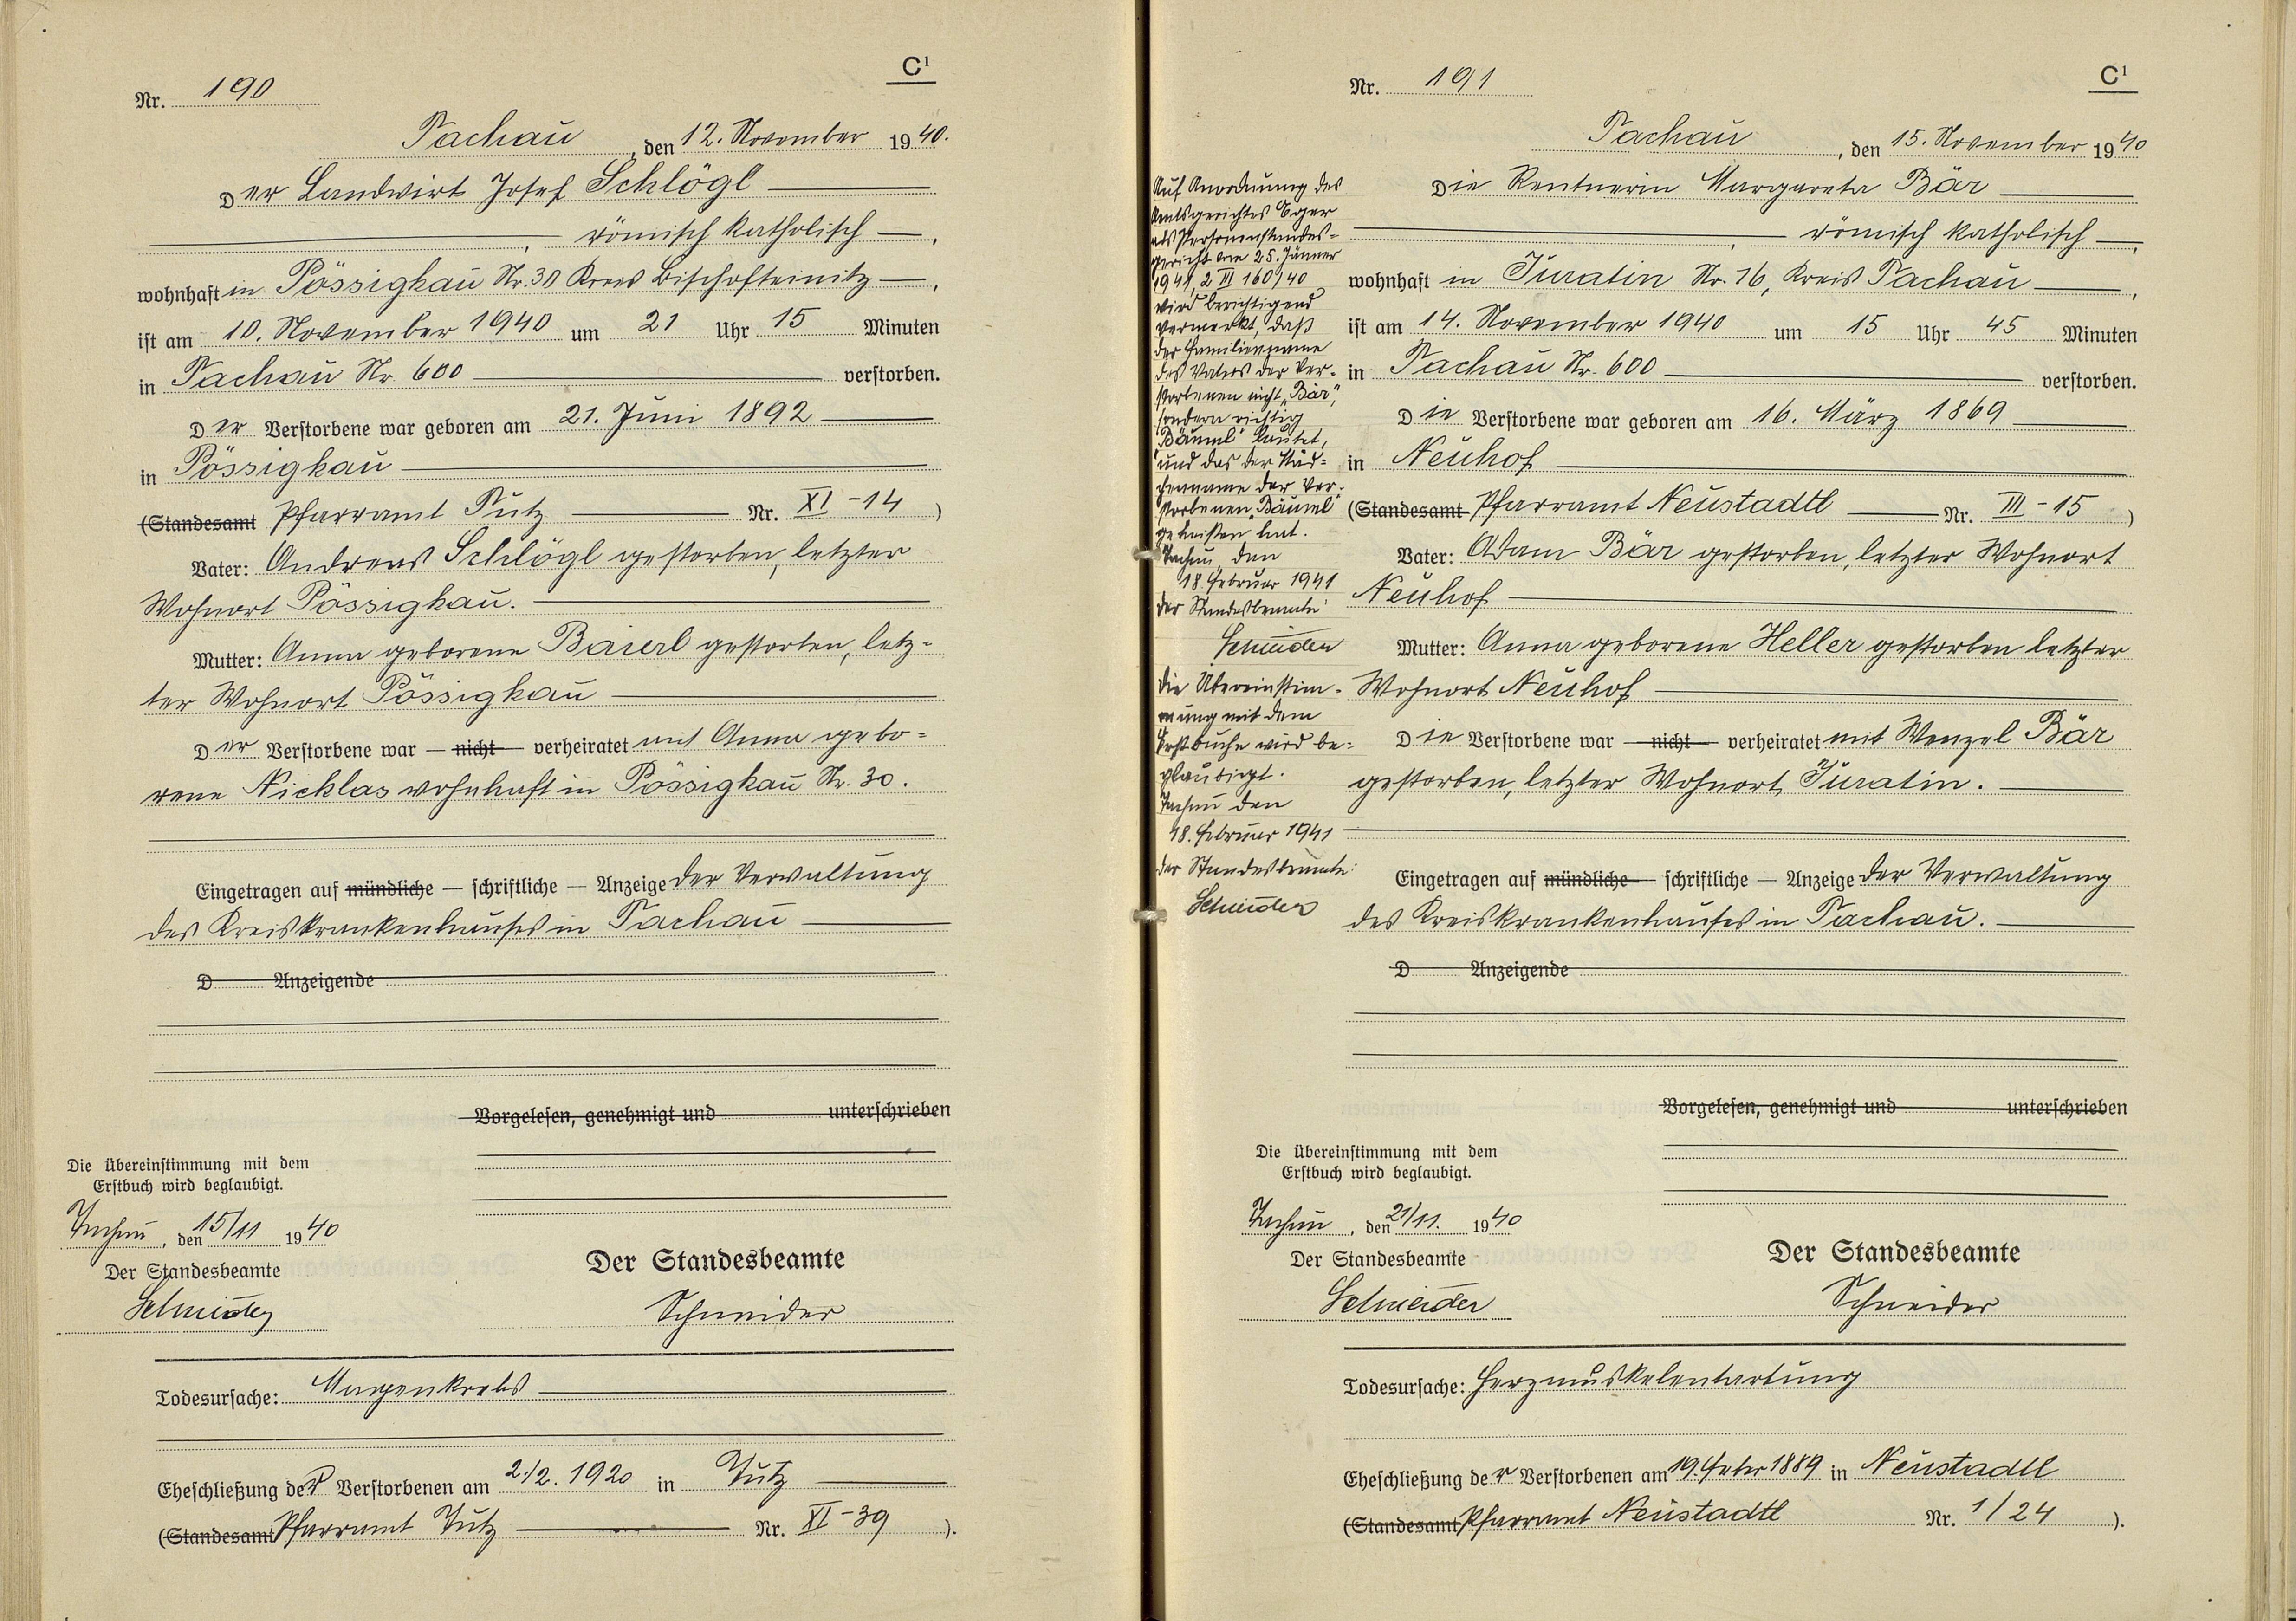 C¹
Nr. 190
Tachau, den 12. November 1940.
Der Landwirt Josef Schlögl
, römisch katholisch,
wohnhaft in Pössigkau Nr. 30 Kreis Bischofteinitz,
ist am 10. November 1940 um 21 Uhr 15 Minuten
in Tachau Nr. 600 verstorben.
Der Verstorbene war geboren am 21. Juni 1892
in Pössigkau
(Standesamt Pfarramt Tutz Nr. XI - 14)
Vater: Andreas Schlögl gestorben, letzter
Wohnort Pössigkau.
Mutter: Anna geborene Baierl gestorben, letz-
ter Wohnort Pössigkau
Der Verstorbene war — nicht — verheiratet mit Anna gebo-
rene Nicklas wohnhaft in Pössigkau Nr. 30.
Eingetragen auf mündliche — schriftliche — Anzeige der Verwaltung
des Kreiskrankenhauses in Tachau
D Anzeigende
Vorgelesen, genehmigt und unterschrieben
Die Übereinstimmung mit dem
Erstbuch wird beglaubigt.
Tachau, den 15/11 1940
Der Standesbeamte
Schneider
Der Standesbeamte
Schneider
Todesursache: Magenkrebs
Eheschließung der Verstorbenen am 2./2. 1920 in Tutz
(Standesamt Pfarramt Tutz Nr. XI - 39).
C¹
Nr. 191
Tachau, den 15. November 1940
Die Rentnerin Margareta Bär
, römisch katholisch,
wohnhaft in Turatin Nr. 16, Kreis Tachau,
ist am 14. November 1940 um 15 Uhr 45 Minuten
in Tachau Nr. 600 verstorben.
Die Verstorbene war geboren am 16. März 1869
in Neuhof
(Standesamt Pfarramt Neustadtl Nr. III - 15)
Vater: Adam Bär gestorben, letzter Wohnort
Neuhof
Mutter: Anna geborene Heller gestorben letzter
Wohnort Neuhof
Die Verstorbene war — nicht — verheiratet mit Wenzel Bär
gestorben, letzter Wohnort Turatin.
Eingetragen auf mündliche — schriftliche — Anzeige der Verwaltung
des Kreiskrankenhauses in Tachau.
D Anzeigende
Vorgelesen, genehmigt und unterschrieben
Auf Anordnung des
Amtsgerichtes Eger
als Personenstandes-
gericht vom 25. Jänner
1941, 2 III 160/40
wird berichtigend
vermerkt, daß
der Familienname
des Vaters der Ver-
storbenen nicht „Bär",
sondern richtig
„Bäuml" lautet,
und das der Mäd-
chenname der Ver-
storbenen „Bäuml"
geheißen hat.
Tachau, den
18. Februar 1941
der Standesbeamte:
Schneider
Die Übereinstim-
mung mit dem
Erstbuche wird be-
glaubigt.
Tachau den
18. Februar 1941
der Standesbeamte:
Schneider
Die Übereinstimmung mit dem
Erstbuch wird beglaubigt.
Tachau, den 21/11. 1940
Der Standesbeamte
Schneider
Der Standesbeamte
Schneider
Todesursache: Herzmuskelentartung
Eheschließung der Verstorbenen am 19. Feber 1889 in Neustadtl
(Standesamt Pfarramt Neustadtl Nr. 1/24).